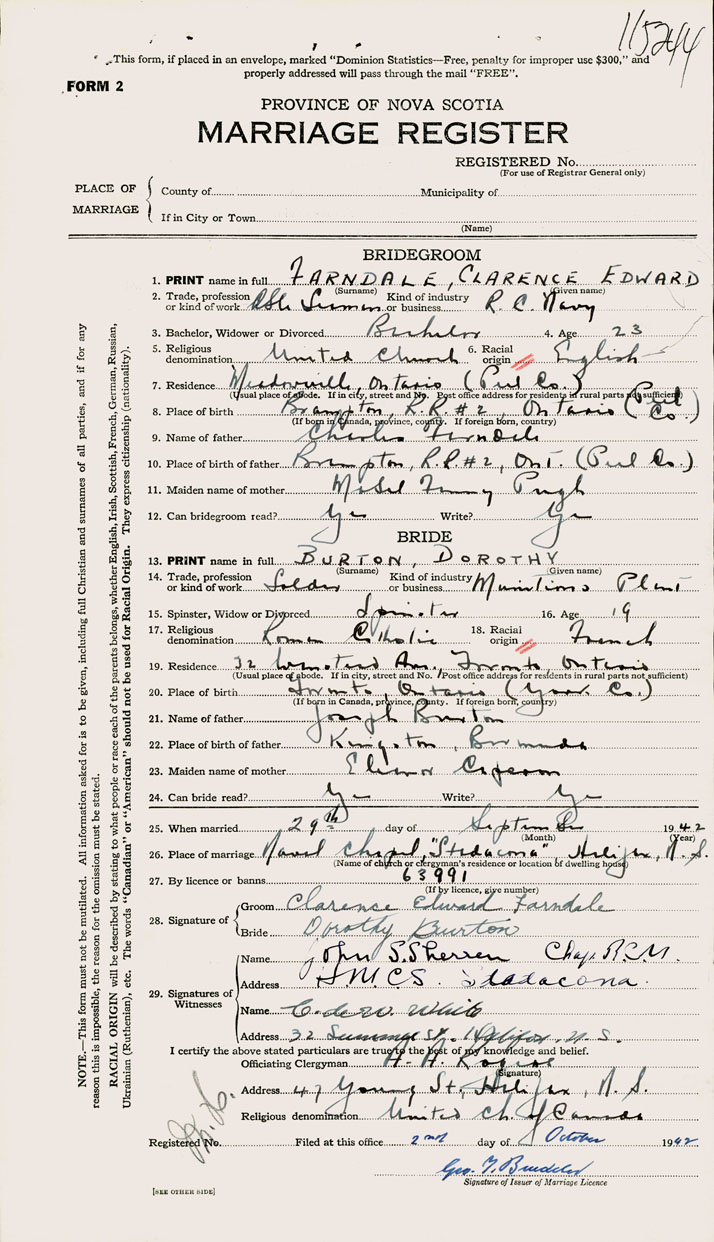 115244
This form, if placed in an envelope, marked "Dominion Statistics—Free, penalty for improper use $300," and
properly addressed will pass through the mail "FREE".
FORM 2
PROVINCE OF NOVA SCOTIA
MARRIAGE REGISTER
REGISTERED No.
(For use of Registrar General only)
PLACE OF MARRIAGE
County of Municipality of
If in City or Town
(Name)
BRIDEGROOM
1. PRINT name in full FARNDALE, CLARENCE EDWARD
(Surname) (Given name)
2. Trade, profession or kind of work Able Seaman Kind of industry or business R. C. Navy
3. Bachelor, Widower or Divorced Bachelor 4. Age 23
5. Religious denomination United Church 6. Racial origin English
7. Residence Meadowville, Ontario (Peel Co.)
(Usual place of abode. If in city, street and No. Post office address for residents in rural parts not sufficient)
8. Place of birth Brampton, R.R. #2, Ontario (Peel Co.)
(If born in Canada, province, county. If foreign born, country)
9. Name of father Charles Farndale
10. Place of birth of father Brampton, R.R. #2, Ont. (Peel Co.)
11. Maiden name of mother Mabel Pugh
12. Can bridegroom read? Yes Write? Yes
BRIDE
13. PRINT name in full BURTON, DOROTHY
(Surname) (Given name)
14. Trade, profession or kind of work Solder Kind of industry or business Munitions Plant
15. Spinster, Widow or Divorced Spinster 16. Age 19
17. Religious denomination Roman Catholic 18. Racial origin French
19. Residence 32 Ave., Toronto, Ontario
(Usual place of abode. If in city, street and No. Post office address for residents in rural parts not sufficient)
20. Place of birth Toronto, Ontario (York Co.)
(If born in Canada, province, county. If foreign born, country)
21. Name of father Joseph Burton
22. Place of birth of father Kingston, Bermuda
23. Maiden name of mother Eleanor
24. Can bride read? Yes Write? Yes
25. When married 29th day of September 1942
(Month) (Year)
26. Place of marriage Naval Chapel, "Stadacona", Halifax, N.S.
(Name of church or clergyman's residence or location of dwelling house)
27. By licence or banns 63991
(If by licence, give number)
28. Signature of
Groom Clarence Edward Farndale
Bride Dorothy Burton
29. Signatures of Witnesses
Name John S. Sherren Chap. R.C.N.
Address H.M.C.S. Stadacona.
Name C. de W. White
Address 32 Summer St. Halifax, N.S.
I certify the above stated particulars are true to the best of my knowledge and belief.
Officiating Clergyman H. A.
(Signature)
Address 47 Young St., Halifax, N. S.
Religious denomination United Ch. of Canada
Registered No. Filed at this office 2nd day of October 1942
Geo.
Signature of Issuer of Marriage Licence
[SEE OTHER SIDE]
NOTE.—This form must not be mutilated. All information asked for is to be given, including full Christian and surnames of all parties, and if for any
reason this is impossible, the reason for the omission must be stated.
RACIAL ORIGIN will be described by stating to what people or race each of the parents belongs, whether English, Irish, Scottish, French, German, Russian,
Ukrainian (Ruthenian), etc. The words "Canadian" or "American" should not be used for Racial Origin. They express citizenship (nationality).